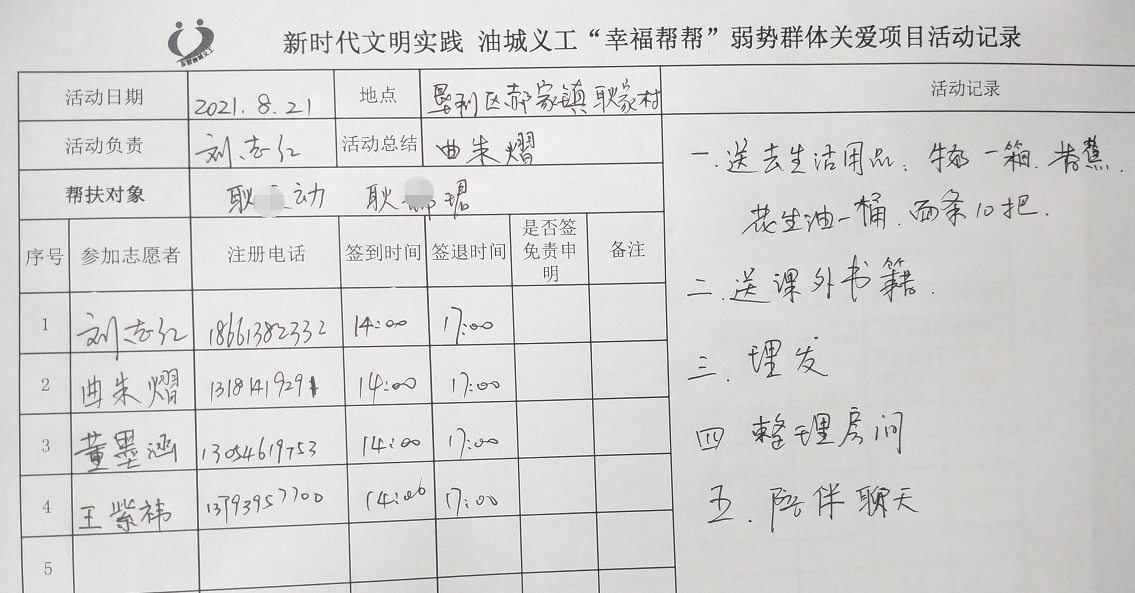 东营油城义工
新时代文明实践 油城义工“幸福帮帮”弱势群体关爱项目活动记录
活动日期 2021.8.21 地点 垦利区郝家镇耿家村
活动负责 刘志仁 活动总结 曲朱熠
帮扶对象 耿 动 耿 珺
序号 参加志愿者 注册电话 签到时间 签退时间 是否签免责申明 备注
1 刘志仁 18661382332 14:00 17:00
2 曲朱熠 13181419291 14:00 17:00
3 董墨涵 13054619753 14:00 17:00
4 王紫祎 13793957700 14:00 17:00
5
活动记录
一.送去生活用品:牛奶一箱.香蕉.
花生油一桶.面条10把.
二.送课外书籍.
三.理发
四 整理房间
五.陪伴聊天